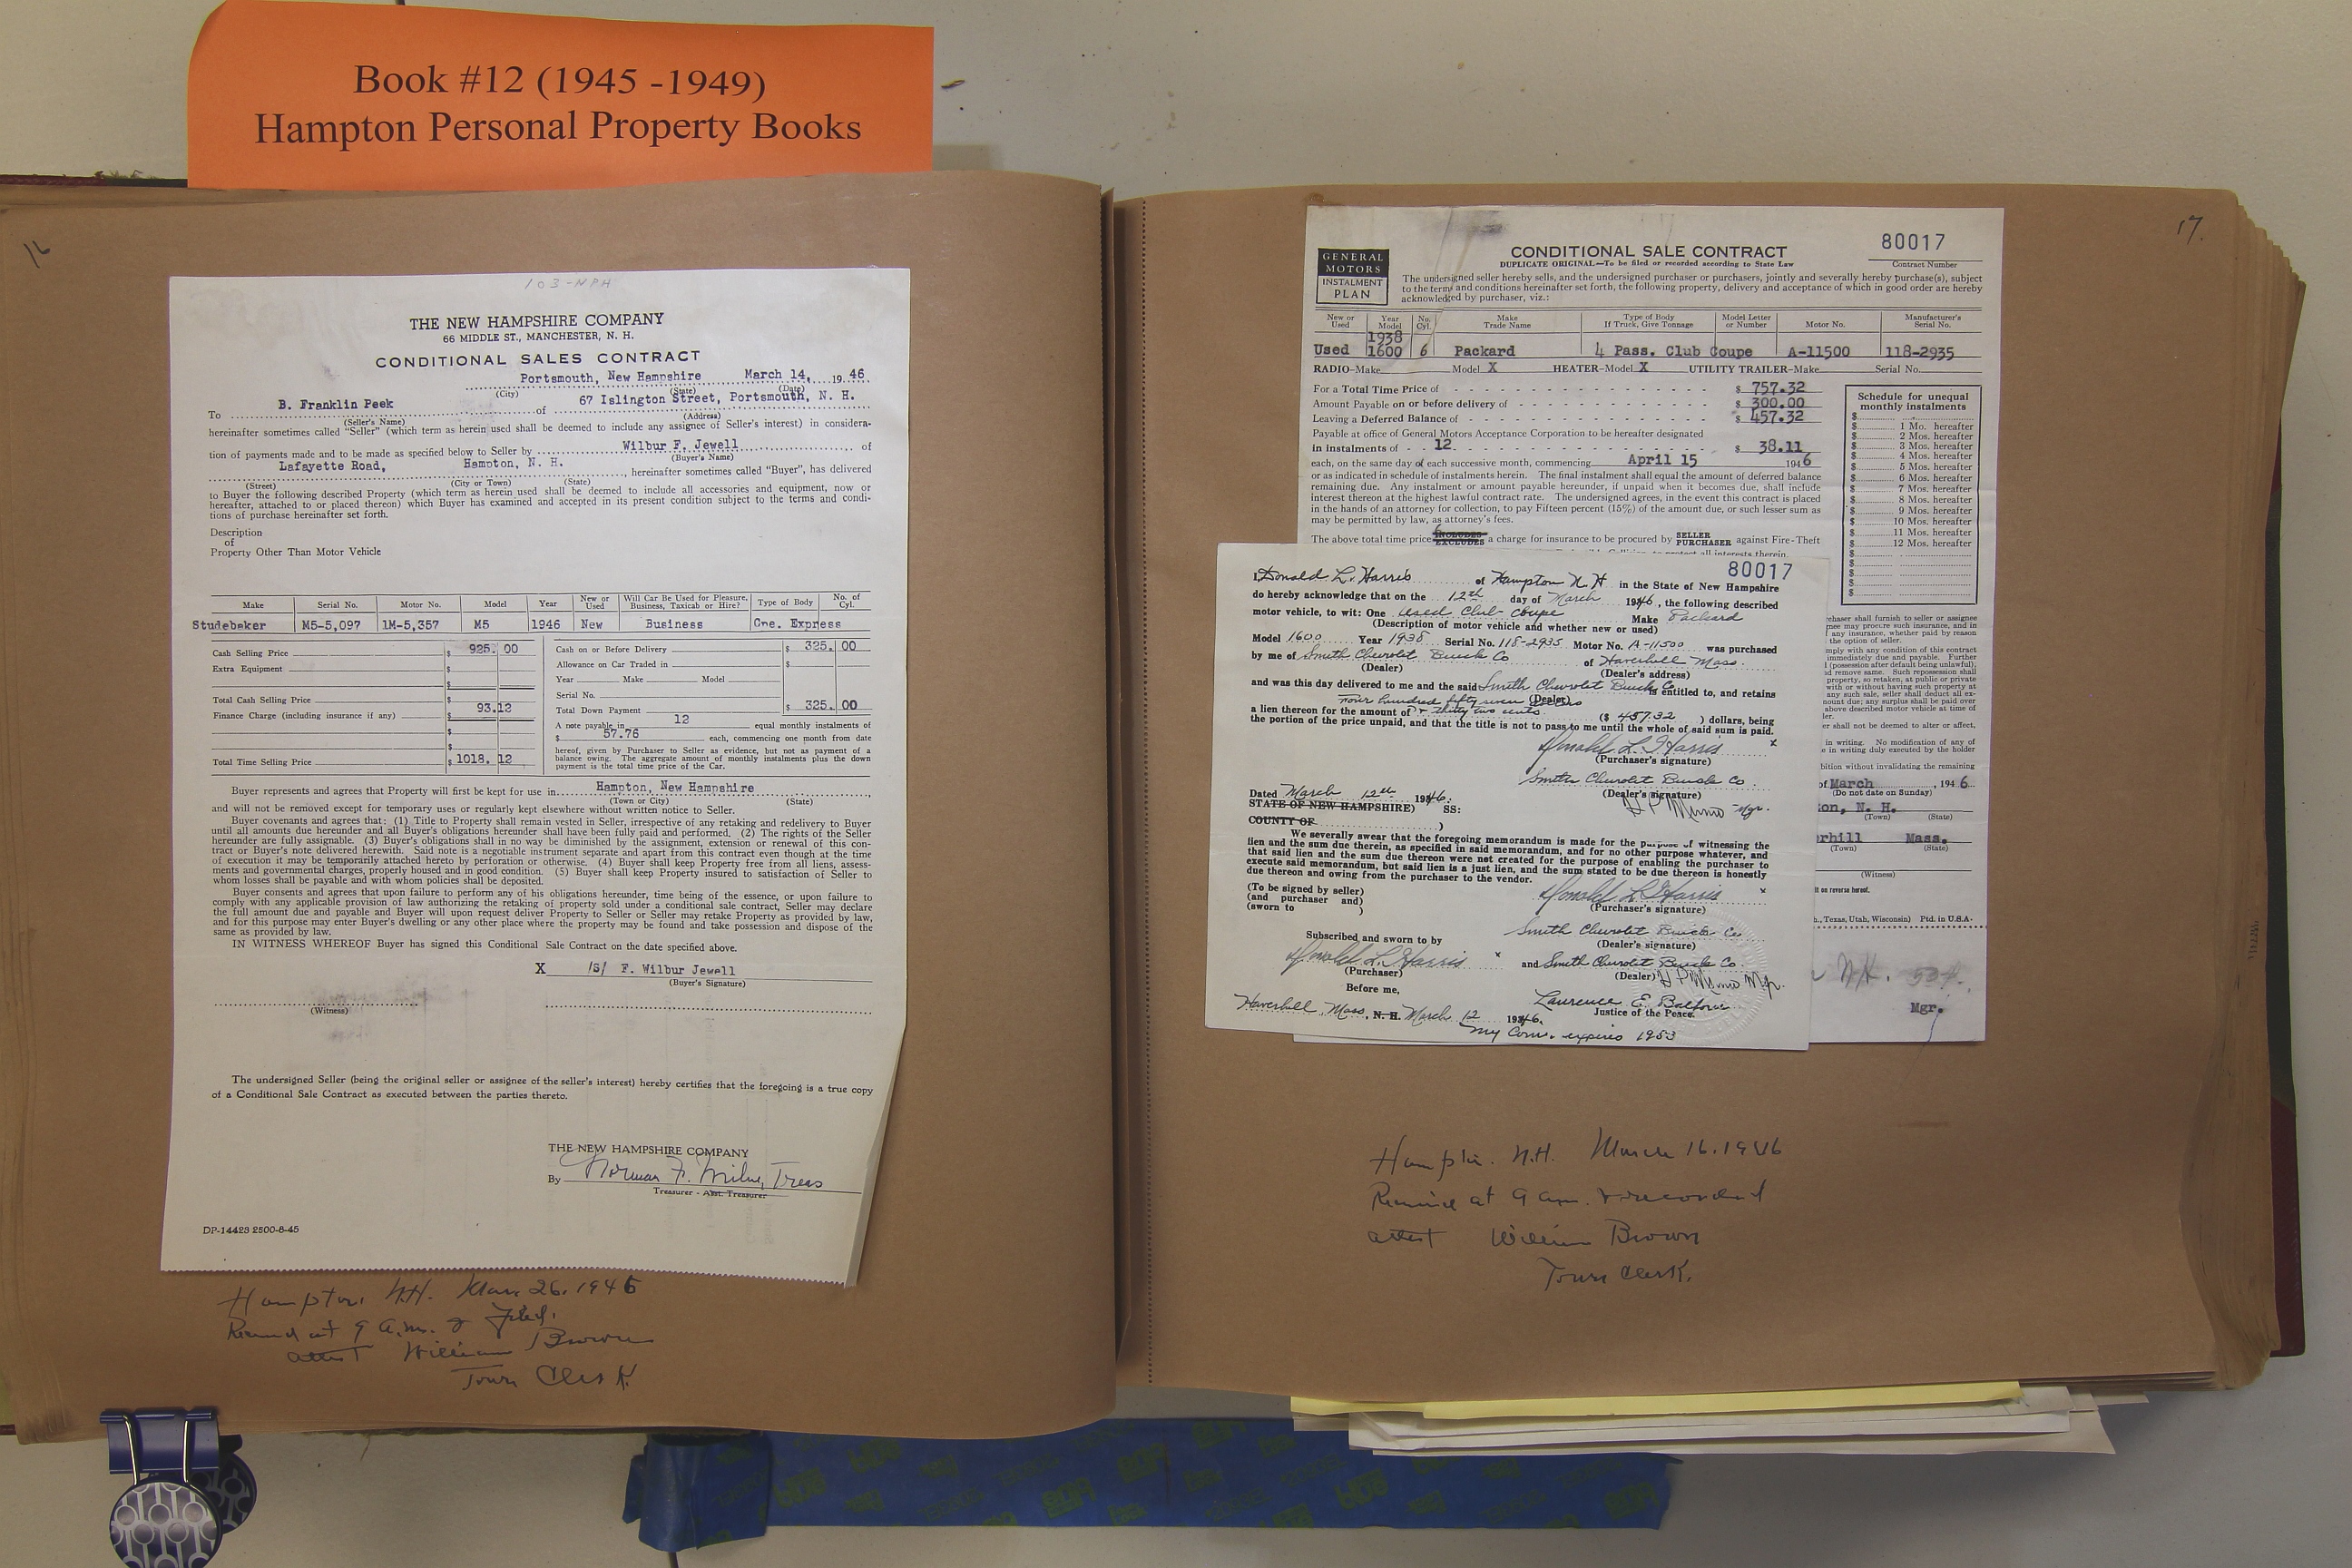 Book #12 (1945 -1949)
Hampton Personal Property Books
16
103-NPH
THE NEW HAMPSHIRE COMPANY
66 MIDDLE ST., MANCHESTER, N. H.
CONDITIONAL SALES CONTRACT
Portsmouth, New Hampshire March 14, 1946
(City) (State) (Date)
To B. Franklin Peek of 67 Islington Street, Portsmouth, N. H.
(Seller's Name) (Address)
hereinafter sometimes called "Seller" (which term as herein used shall be deemed to include any assignee of Seller's interest) in considera-
tion of payments made and to be made as specified below to Seller by Wilbur F. Jewell of
(Buyer's Name)
Lafayette Road, Hampton, N. H. , hereinafter sometimes called "Buyer", has delivered
(Street) (City or Town) (State)
to Buyer the following described Property (which term as herein used shall be deemed to include all accessories and equipment, now or
hereafter, attached to or placed thereon) which Buyer has examined and accepted in its present condition subject to the terms and condi-
tions of purchase hereinafter set forth.
Description
of
Property Other Than Motor Vehicle
Make Serial No. Motor No. Model Year New or Used Will Car Be Used for Pleasure, Business, Taxicab or Hire? Type of Body No. of Cyl.
Studebaker M5-5,097 1M-5,357 M5 1946 New Business Cne. Express
Cash Selling Price $ 925. 00
Extra Equipment $
$
Total Cash Selling Price $
Finance Charge (including insurance if any) 93.12
$
$
Total Time Selling Price $ 1018. 12
Cash on or Before Delivery $ 325. 00
Allowance on Car Traded in $
Year Make Model
Serial No.
Total Down Payment $ 325. 00
A note payable in 12 equal monthly instalments of
$ 57.76 each, commencing one month from date
hereof, given by Purchaser to Seller as evidence, but not as payment of a
balance owing. The aggregate amount of monthly instalments plus the down
payment is the total time price of the Car.
Buyer represents and agrees that Property will first be kept for use in Hampton, New Hampshire ,
(Town or City) (State)
and will not be removed except for temporary uses or regularly kept elsewhere without written notice to Seller.
Buyer covenants and agrees that: (1) Title to Property shall remain vested in Seller, irrespective of any retaking and redelivery to Buyer
until all amounts due hereunder and all Buyer's obligations hereunder shall have been fully paid and performed. (2) The rights of the Seller
hereunder are fully assignable. (3) Buyer's obligations shall in no way be diminished by the assignment, extension or renewal of this con-
tract or Buyer's note delivered herewith. Said note is a negotiable instrument separate and apart from this contract even though at the time
of execution it may be temporarily attached hereto by perforation or otherwise. (4) Buyer shall keep Property free from all liens, assess-
ments and governmental charges, properly housed and in good condition. (5) Buyer shall keep Property insured to satisfaction of Seller to
whom losses shall be payable and with whom policies shall be deposited.
Buyer consents and agrees that upon failure to perform any of his obligations hereunder, time being of the essence, or upon failure to
comply with any applicable provision of law authorizing the retaking of property sold under a conditional sale contract, Seller may declare
the full amount due and payable and Buyer will upon request deliver Property to Seller or Seller may retake Property as provided by law,
and for this purpose may enter Buyer's dwelling or any other place where the property may be found and take possession and dispose of the
same as provided by law.
IN WITNESS WHEREOF Buyer has signed this Conditional Sale Contract on the date specified above.
X /S/ F. Wilbur Jewell
(Buyer's Signature)
(Witness)
The undersigned Seller (being the original seller or assignee of the seller's interest) hereby certifies that the foregoing is a true copy
of a Conditional Sale Contract as executed between the parties thereto.
THE NEW HAMPSHIRE COMPANY
By Norman F. Milne, Treas
Treasurer - Asst. Treasurer
DP-14423 2500-8-45
Hampton, N.H. Mar. 26, 1946
Received at 9 A.M. & Filed.
attest William Brown
Town Clerk
17.
GENERAL
MOTORS
INSTALMENT
PLAN
CONDITIONAL SALE CONTRACT
DUPLICATE ORIGINAL—To be filed or recorded according to State Law
80017
Contract Number
The undersigned seller hereby sells, and the undersigned purchaser or purchasers, jointly and severally hereby purchase(s), subject
to the terms and conditions hereinafter set forth, the following property, delivery and acceptance of which in good order are hereby
acknowledged by purchaser, viz.:
New or Used Year Model No. Cyl. Make Trade Name Type of Body If Truck, Give Tonnage Model Letter or Number Motor No. Manufacturer's Serial No.
Used 1938 1600 6 Packard 4 Pass. Club Coupe A-11500 118-2935
RADIO—Make Model X HEATER—Model X UTILITY TRAILER—Make Serial No.
For a Total Time Price of $ 757.32
Amount Payable on or before delivery of $ 300.00
Leaving a Deferred Balance of $ 457.32
Payable at office of General Motors Acceptance Corporation to be hereafter designated
in instalments of 12 $ 38.11
each, on the same day of each successive month, commencing April 15 1946
or as indicated in schedule of instalments herein. The final instalment shall equal the amount of deferred balance
remaining due. Any instalment or amount payable hereunder, if unpaid when it becomes due, shall include
interest thereon at the highest lawful contract rate. The undersigned agrees, in the event this contract is placed
in the hands of an attorney for collection, to pay Fifteen percent (15%) of the amount due, or such lesser sum as
may be permitted by law, as attorney's fees.
The above total time price INCLUDES EXCLUDES a charge for insurance to be procured by SELLER PURCHASER against Fire-Theft
all interests therein.
Schedule for unequal
monthly instalments
$ 1 Mo. hereafter
$ 2 Mos. hereafter
$ 3 Mos. hereafter
$ 4 Mos. hereafter
$ 5 Mos. hereafter
$ 6 Mos. hereafter
$ 7 Mos. hereafter
$ 8 Mos. hereafter
$ 9 Mos. hereafter
$ 10 Mos. hereafter
$ 11 Mos. hereafter
$ 12 Mos. hereafter
$
$
$
$
80017
I, Donald L. Harris of Hampton N. H in the State of New Hampshire
do hereby acknowledge that on the 12th day of March 1946, the following described
motor vehicle, to wit: One used Club Coupe Make Packard
(Description of motor vehicle and whether new or used)
Model 1600 Year 1938 Serial No. 118-2935 Motor No. A-11500 was purchased
by me of Smith Chevrolet Buick Co of Haverhill Mass.
(Dealer) (Dealer's address)
and was this day delivered to me and the said Smith Chevrolet Buick Co is entitled to, and retains
(Dealer)
a lien thereon for the amount of Four hundred fifty seven dollars & thirty two cents ($ 457.32 ) dollars, being
the portion of the price unpaid, and that the title is not to pass to me until the whole of said sum is paid.
Donald L. Harris x
(Purchaser's signature)
Smith Chevrolet Buick Co.
(Dealer's signature)
Dated March 12th 1946.
STATE OF NEW HAMPSHIRE) SS:
COUNTY OF )
We severally swear that the foregoing memorandum is made for the purpose of witnessing the
lien and the sum due therein, as specified in said memorandum, and for no other purpose whatever, and
that said lien and the sum due thereon were not created for the purpose of enabling the purchaser to
execute said memorandum, but said lien is a just lien, and the sum stated to be due thereon is honestly
due thereon and owing from the purchaser to the vendor.
(To be signed by seller)
(and purchaser and)
(sworn to )
Donald L. Harris x
(Purchaser's signature)
Smith Chevrolet Buick Co
(Dealer's signature)
Subscribed and sworn to by
Donald L. Harris x and Smith Chevrolet Buick Co.
(Purchaser) (Dealer)
Before me,
Haverhill, Mass, N. H. March 12 1946.
Laurence E.
Justice of the Peace.
My Com. expires 1953
chaser shall furnish to seller or assignee
may procure such insurance, and in
any insurance, whether paid by reason
the option of seller.
mply with any condition of this contract
immediately due and payable. Further
(possession after default being unlawful),
remove same. Such repossession shall
property, so retaken, at public or private
with or without having such property at
any such sale, seller shall deduct all ex-
ount due; any surplus shall be paid over
above described motor vehicle at time of
shall not be deemed to alter or affect,
in writing. No modification of any of
in writing duly executed by the holder
bition without invalidating the remaining
of March , 1946.
(Do not date on Sunday)
on, N. H.
(Town) (State)
rhill Mass.
(Town) (State)
(Witness)
it on reverse hereof.
, Texas, Utah, Wisconsin) Ptd. in U.S.A.
N.H.
Mgr.
Hampton. N.H. March 16. 1946
Received at 9 am. & recorded
attest William Brown
Town Clerk.